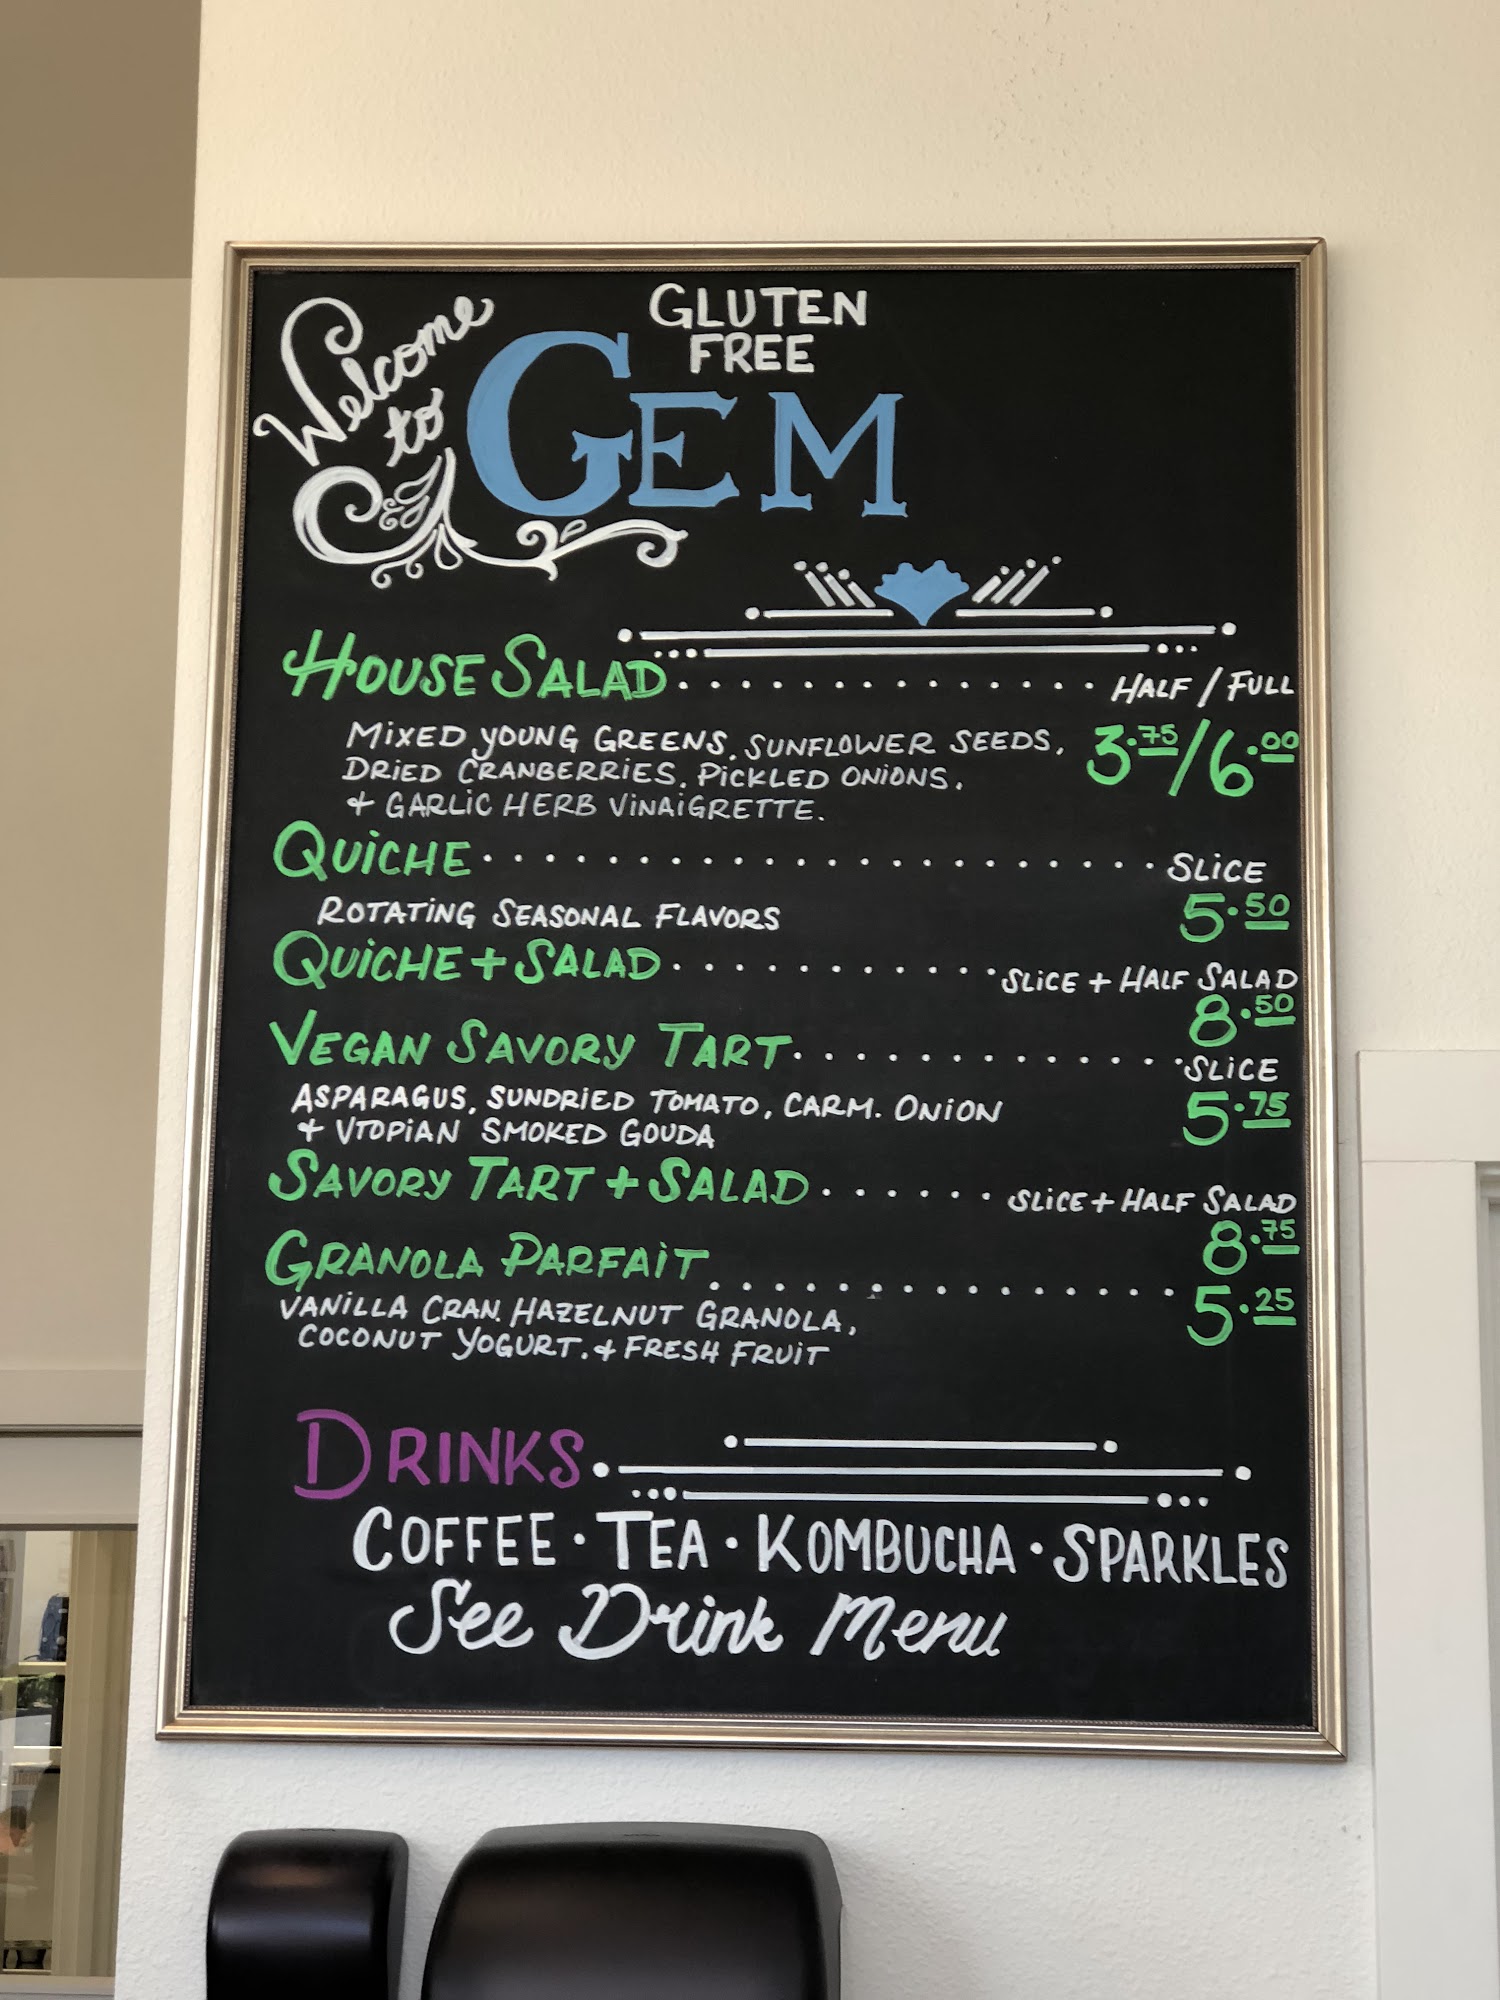 Welcome
to
GLUTEN
FREE
GEM
HOUSE SALAD. . . . . . . . . . . . . . HALF / FULL
MIXED YOUNG GREENS, SUNFLOWER SEEDS, 3.75/6.00
DRIED CRANBERRIES, PICKLED ONIONS,
& GARLIC HERB VINAIGRETTE.
QUICHE. . . . . . . . . . . . . . . . . . . . . . SLICE
ROTATING SEASONAL FLAVORS 5.50
QUICHE + SALAD. . . . . . . . . . . SLICE + HALF SALAD
8.50
VEGAN SAVORY TART. . . . . . . . . . . . . SLICE
ASPARAGUS, SUNDRIED TOMATO, CARM. ONION 5.75
& UTOPIAN SMOKED GOUDA
SAVORY TART + SALAD. . . . . . SLICE + HALF SALAD
8.75
GRANOLA PARFAIT. . . . . . . . . . . . . . . 5.25
VANILLA CRAN. HAZELNUT GRANOLA,
COCONUT YOGURT. & FRESH FRUIT
DRINKS
COFFEE · TEA · KOMBUCHA · SPARKLES
See Drink Menu